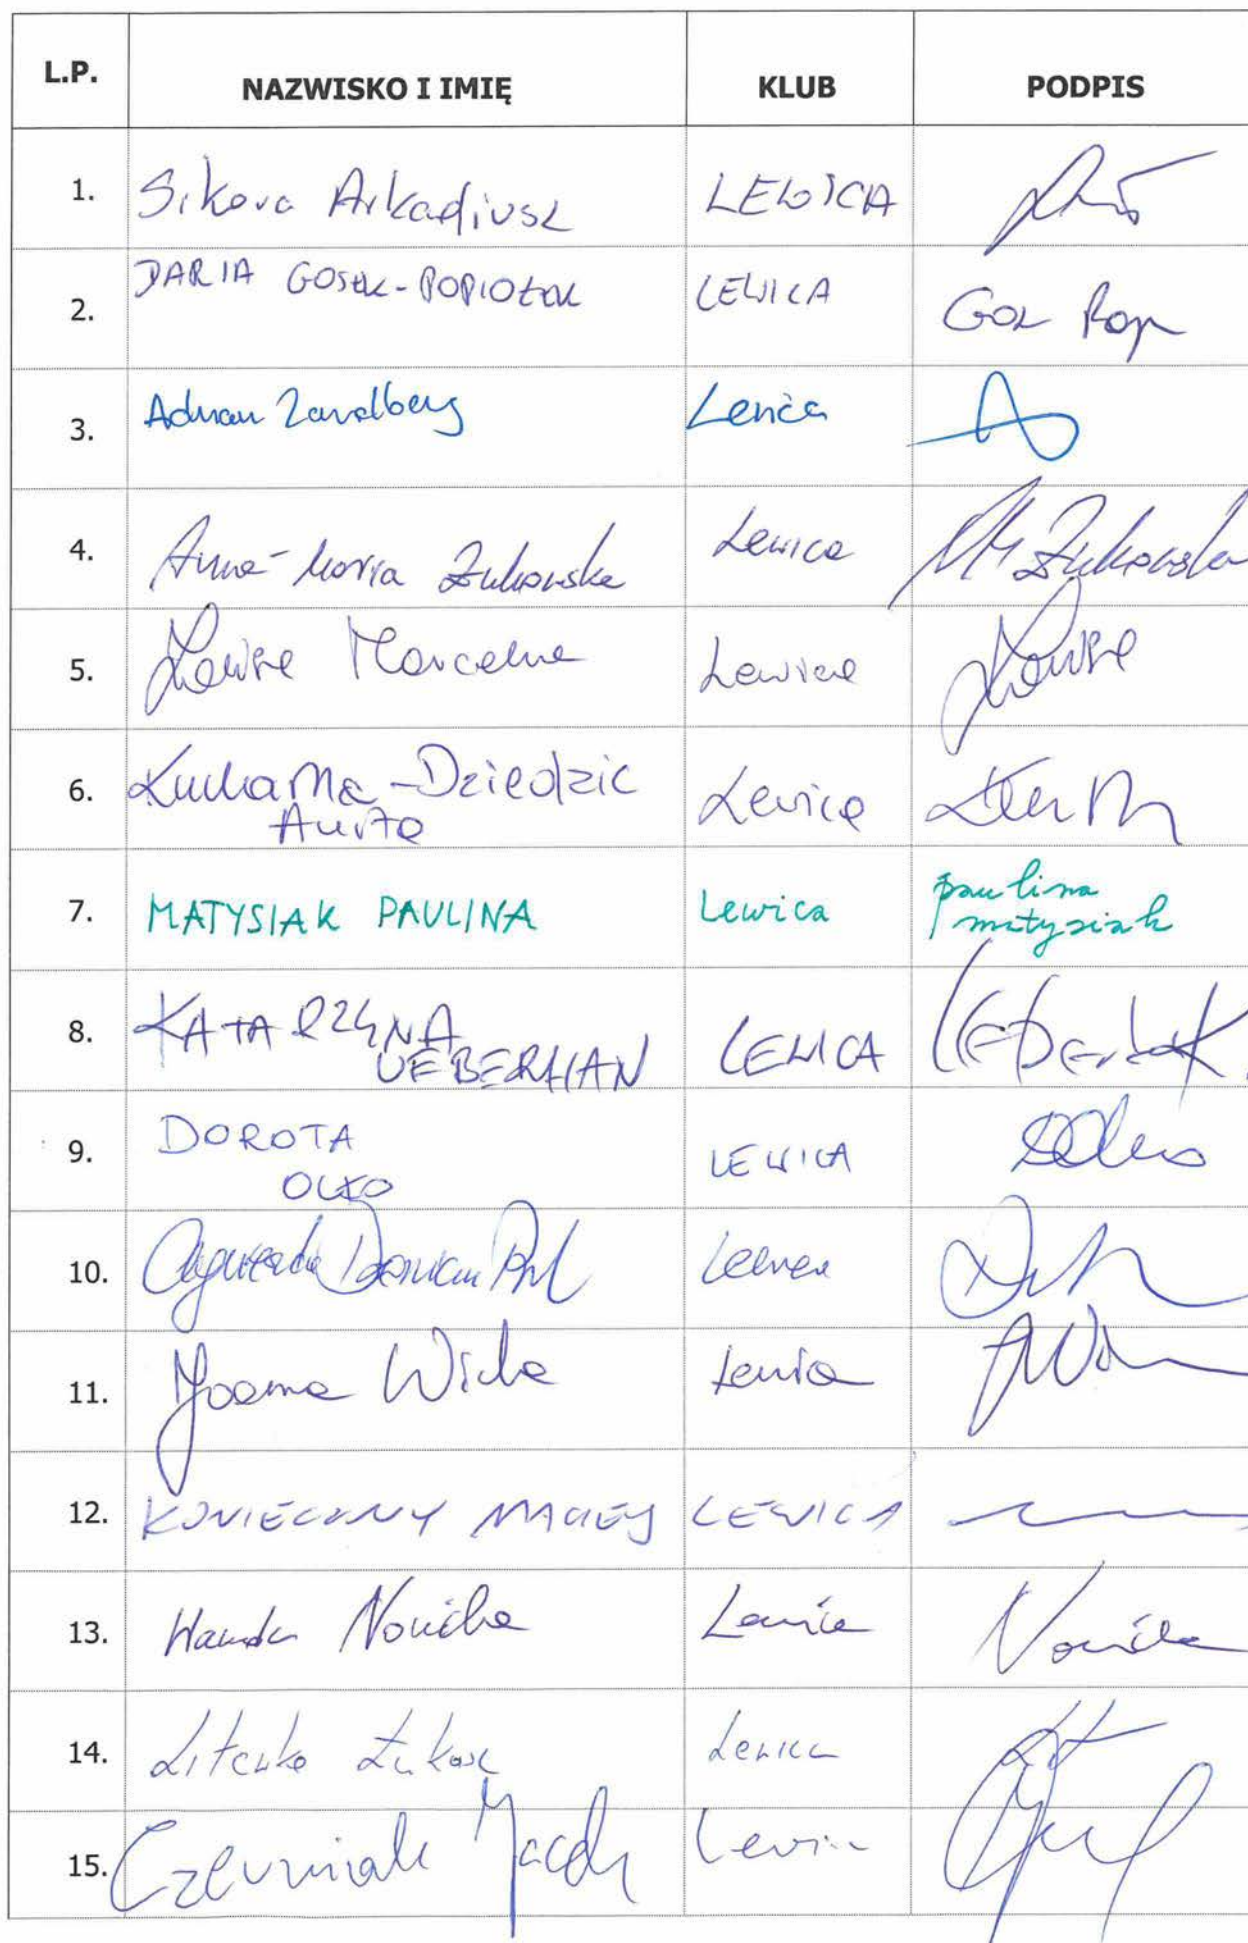 L.P. NAZWISKO I IMIĘ KLUB PODPIS
1. Sikora Arkadiusz LEWICA
2. DARIA GOSEK-POPIOŁEK LEWICA Gos Pop
3. Adrian Zandberg Lewica
4. Anna-Maria Żukowska Lewica AM Żukowska
5. Zawisza Marcelina Lewica Zawisza
6. Kucharska-Dziedzic
Anita Lewica
7. MATYSIAK PAULINA Lewica paulina
matysiak
8. KATARZYNA
UEBERHAN LEWICA
9. DOROTA
OLKO LEWICA Olko
10. Agnieszka Dziemianowicz-Bąk Lewica
11. Joanna Wicha Lewica
12. KONIECZNY MACIEJ LEWICA
13. Wanda Nowicka Lewica Nowicka
14. Litewka Łukasz Lewica
15. Czerniak Jacek Lewica